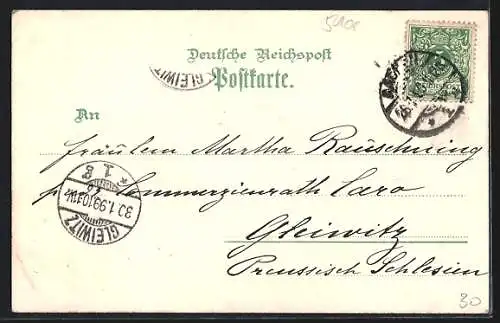 5108
Deutsche Reichspost
GLEIWITZ
Postkarte.
An
Fräulein Martha Rauschning
p. Commerzienrath Caro
Gleiwitz
Preussisch Schlesien
GLEIWITZ
30.1.99.10-11V.
* 1. g
30